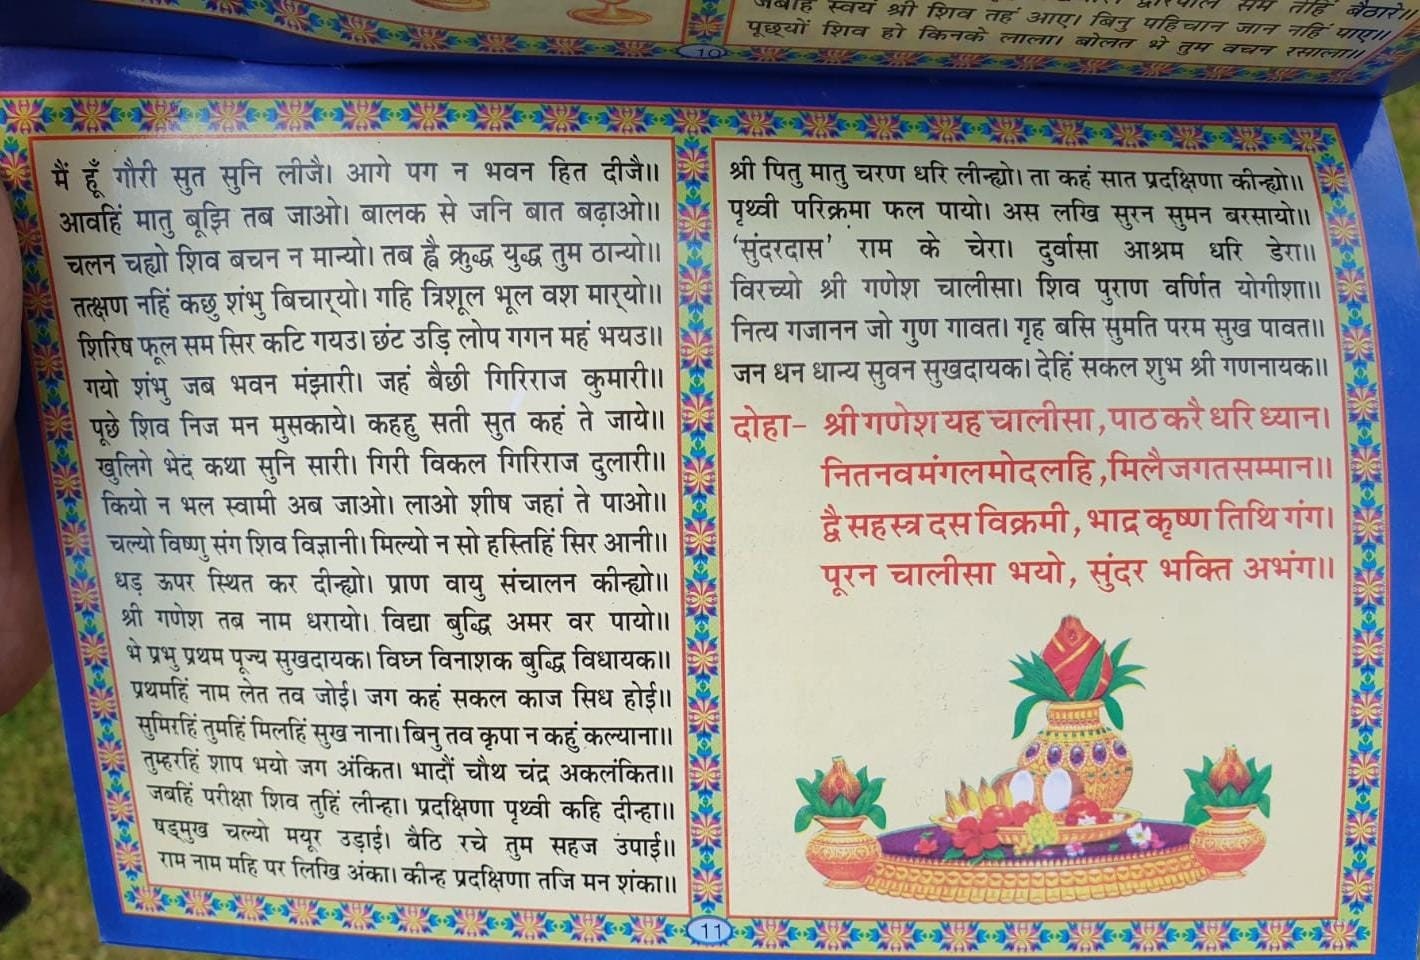 जबहिं स्वयं श्री शिव तहं आए। बिनु पहिचान जान नहिं पाए॥
पूछ्यों शिव हो किनके लाला। बोलत भे तुम वचन रसाला॥
10
मैं हूँ गौरी सुत सुनि लीजै। आगे पग न भवन हित दीजै॥
आवहिं मातु बूझि तब जाओ। बालक से जनि बात बढ़ाओ॥
चलन चह्यो शिव बचन न मान्यो। तब ह्वै क्रुद्ध युद्ध तुम ठान्यो॥
तत्क्षण नहिं कछु शंभु बिचार्‌यो। गहि त्रिशूल भूल वश मार्‌यो॥
शिरिष फूल सम सिर कटि गयउ। छंट उड़ि लोप गगन महं भयउ॥
गयो शंभु जब भवन मंझारी। जहं बैछी गिरिराज कुमारी॥
पूछे शिव निज मन मुसकाये। कहहु सती सुत कहं ते जाये॥
खुलिगे भेद कथा सुनि सारी। गिरी विकल गिरिराज दुलारी॥
कियो न भल स्वामी अब जाओ। लाओ शीष जहां ते पाओ॥
चल्यो विष्णु संग शिव विज्ञानी। मिल्यो न सो हस्तिहिं सिर आनी॥
धड़ ऊपर स्थित कर दीन्ह्यो। प्राण वायु संचालन कीन्ह्यो॥
श्री गणेश तब नाम धरायो। विद्या बुद्धि अमर वर पायो॥
भे प्रभु प्रथम पूज्य सुखदायक। विघ्न विनाशक बुद्धि विधायक॥
प्रथमहिं नाम लेत तव जोई। जग कहं सकल काज सिध होई॥
सुमिरहिं तुमहिं मिलहिं सुख नाना। बिनु तव कृपा न कहुं कल्याना॥
तुम्हरहिं शाप भयो जग अंकित। भादौं चौथ चंद्र अकलंकित॥
जबहिं परीक्षा शिव तुहिं लीन्हा। प्रदक्षिणा पृथ्वी कहि दीन्हा॥
षड्मुख चल्यो मयूर उड़ाई। बैठि रचे तुम सहज उंपाई॥
राम नाम महि पर लिखि अंका। कीन्ह प्रदक्षिणा तजि मन शंका॥
श्री पितु मातु चरण धरि लीन्ह्यो। ता कहं सात प्रदक्षिणा कीन्ह्यो॥
पृथ्वी परिक्रमा फल पायो। अस लखि सुरन सुमन बरसायो॥
‘सुंदरदास’ राम के चेरा। दुर्वासा आश्रम धरि डेरा॥
विरच्यो श्री गणेश चालीसा। शिव पुराण वर्णित योगीशा॥
नित्य गजानन जो गुण गावत। गृह बसि सुमति परम सुख पावत॥
जन धन धान्य सुवन सुखदायक। देहिं सकल शुभ श्री गणनायक॥
दोहा- श्री गणेश यह चालीसा, पाठ करै धरि ध्यान।
नित नव मंगल मोद लहि, मिलै जगत सम्मान॥
द्वै सहस्त्र दस विक्रमी, भाद्र कृष्ण तिथि गंग।
पूरन चालीसा भयो, सुंदर भक्ति अभंग॥
11